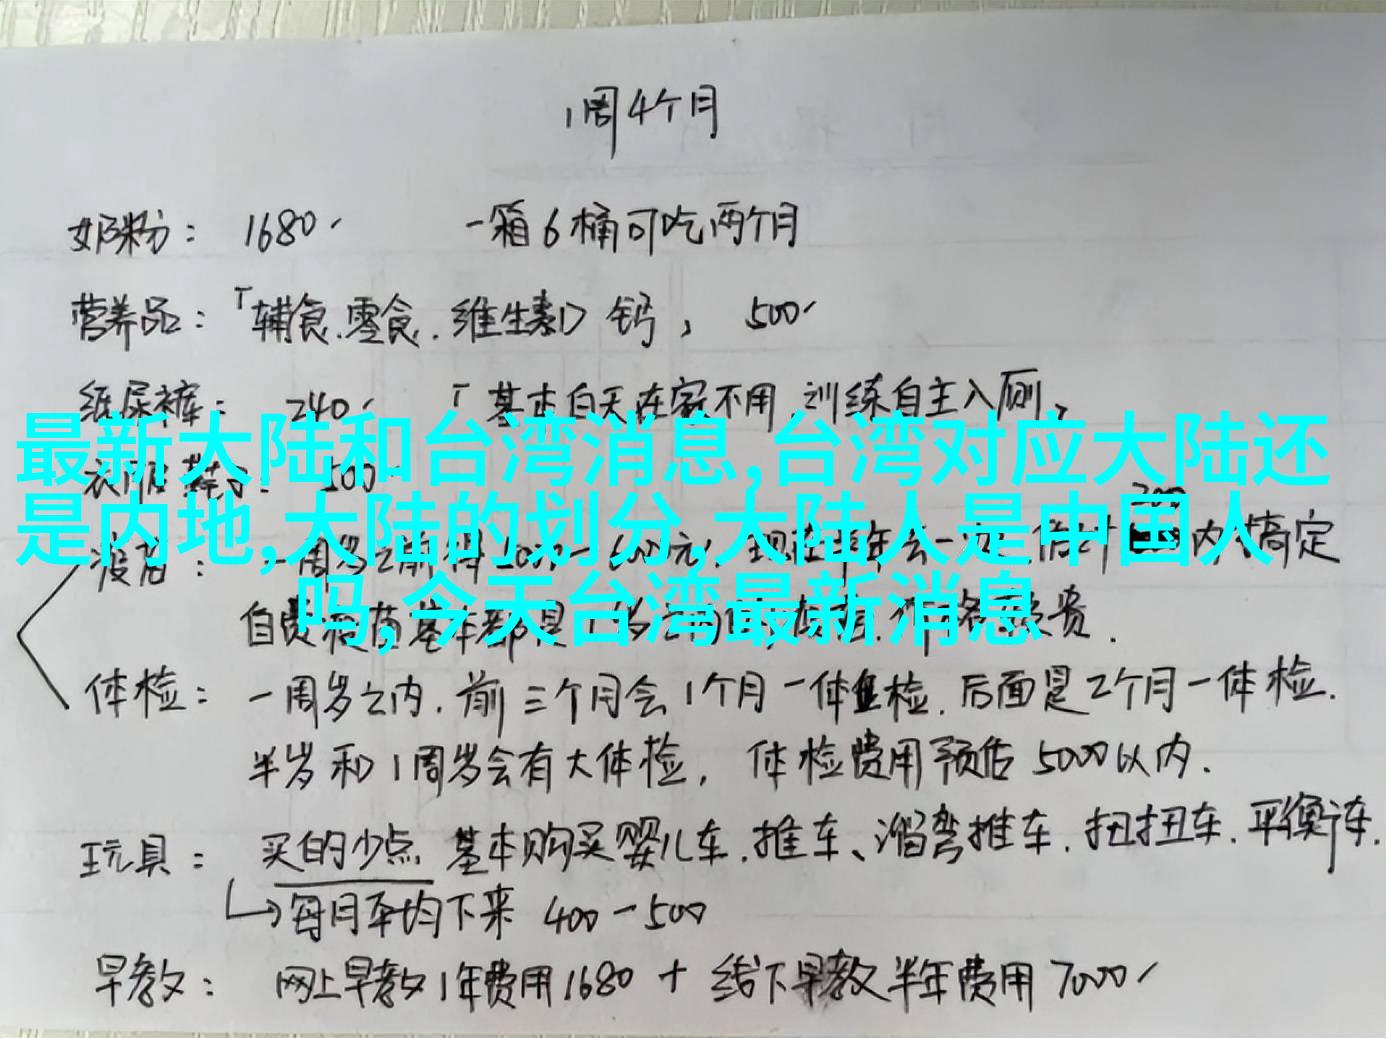 1周4个月
奶粉： 1680 一箱6桶可吃两个月
营养品：「辅食.零食.维生素D 钙， 500
纸尿裤： 240 「基本白天在家不用 训练自主入厕，
最新大陆和台湾消息,台湾对应大陆还
500
是内地,大陆的划分,大陆人是中国人
一周岁之前 内搞定
吗,今天台湾最新消息
自费 基本都是 贵.
体检： 一周岁之内.前三个月会1个月一体检.后面是2个月一体检.
半岁和1周岁会有大体检， 体检费用预估5000以内.
玩具： 买的少点 基本购买婴儿车.推车、溜弯推车.扭扭车.平衡车.
每月平均下来 400-500
早教： 网上早教1年费用1680 + 线下早教半年费用7000